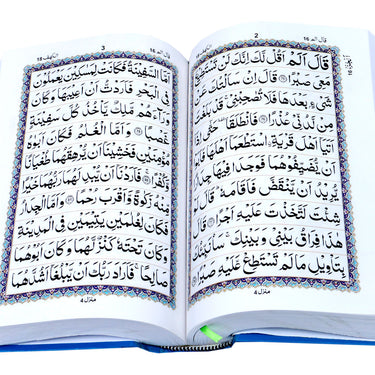 قال الم ١٦
2
قَالَ اَلَمْ اَقُلْ لَّكَ اِنَّكَ لَنْ تَسْتَطِيْعَ
مَعِيَ صَبْرًا ۝ قَالَ اِنْ سَاَلْتُكَ عَنْ
شَيْءٍۢ بَعْدَهَا فَلَا تُصٰحِبْنِيْ ۚ قَدْ بَلَغْتَ
مِنْ لَّدُنِّيْ عُذْرًا ۝ فَانْطَلَقَا ۥ حَتّٰٓى اِذَاۤ
اَتَيَاۤ اَهْلَ قَرْيَةِ ۨاسْتَطْعَمَاۤ اَهْلَهَا فَاَبَوْا
اَنْ يُّضَيِّفُوْهُمَا فَوَجَدَا فِيْهَا جِدَارًا
يُّرِيْدُ اَنْ يَّنْقَضَّ فَاَقَامَهٗ ؕ قَالَ لَوْ
شِئْتَ لَتَّخَذْتَ عَلَيْهِ اَجْرًا ۝ قَالَ
هٰذَا فِرَاقُ بَيْنِيْ وَبَيْنِكَ ۚ سَاُنَبِّئُكَ
بِتَاْوِيْلِ مَا لَمْ تَسْتَطِعْ عَّلَيْهِ صَبْرًا ۝
منزل ٤
3
الكهف ١٨
اَمَّا السَّفِيْنَةُ فَكَانَتْ لِمَسٰكِيْنَ يَعْمَلُوْنَ
فِي الْبَحْرِ فَاَرَدْتُّ اَنْ اَعِيْبَهَا وَكَانَ
وَرَآءَهُمْ مَّلِكٌ يَّاْخُذُ كُلَّ سَفِيْنَةٍ
غَصْبًا ۝ وَاَمَّا الْغُلٰمُ فَكَانَ اَبَوٰهُ
مُؤْمِنَيْنِ فَخَشِيْنَاۤ اَنْ يُّرْهِقَهُمَا طُغْيَانًا
وَّكُفْرًا ۝ فَاَرَدْنَاۤ اَنْ يُّبْدِلَهُمَا رَبُّهُمَا خَيْرًا
مِّنْهُ زَكٰوةً وَّاَقْرَبَ رُحْمًا ۝ وَاَمَّا الْجِدَارُ
فَكَانَ لِغُلٰمَيْنِ يَتِيْمَيْنِ فِي الْمَدِيْنَةِ
وَكَانَ تَحْتَهٗ كَنْزٌ لَّهُمَا وَكَانَ اَبُوْهُمَا
صَالِحًا ۚ فَاَرَادَ رَبُّكَ اَنْ يَّبْلُغَاۤ اَشُدَّهُمَا
منزل ٤